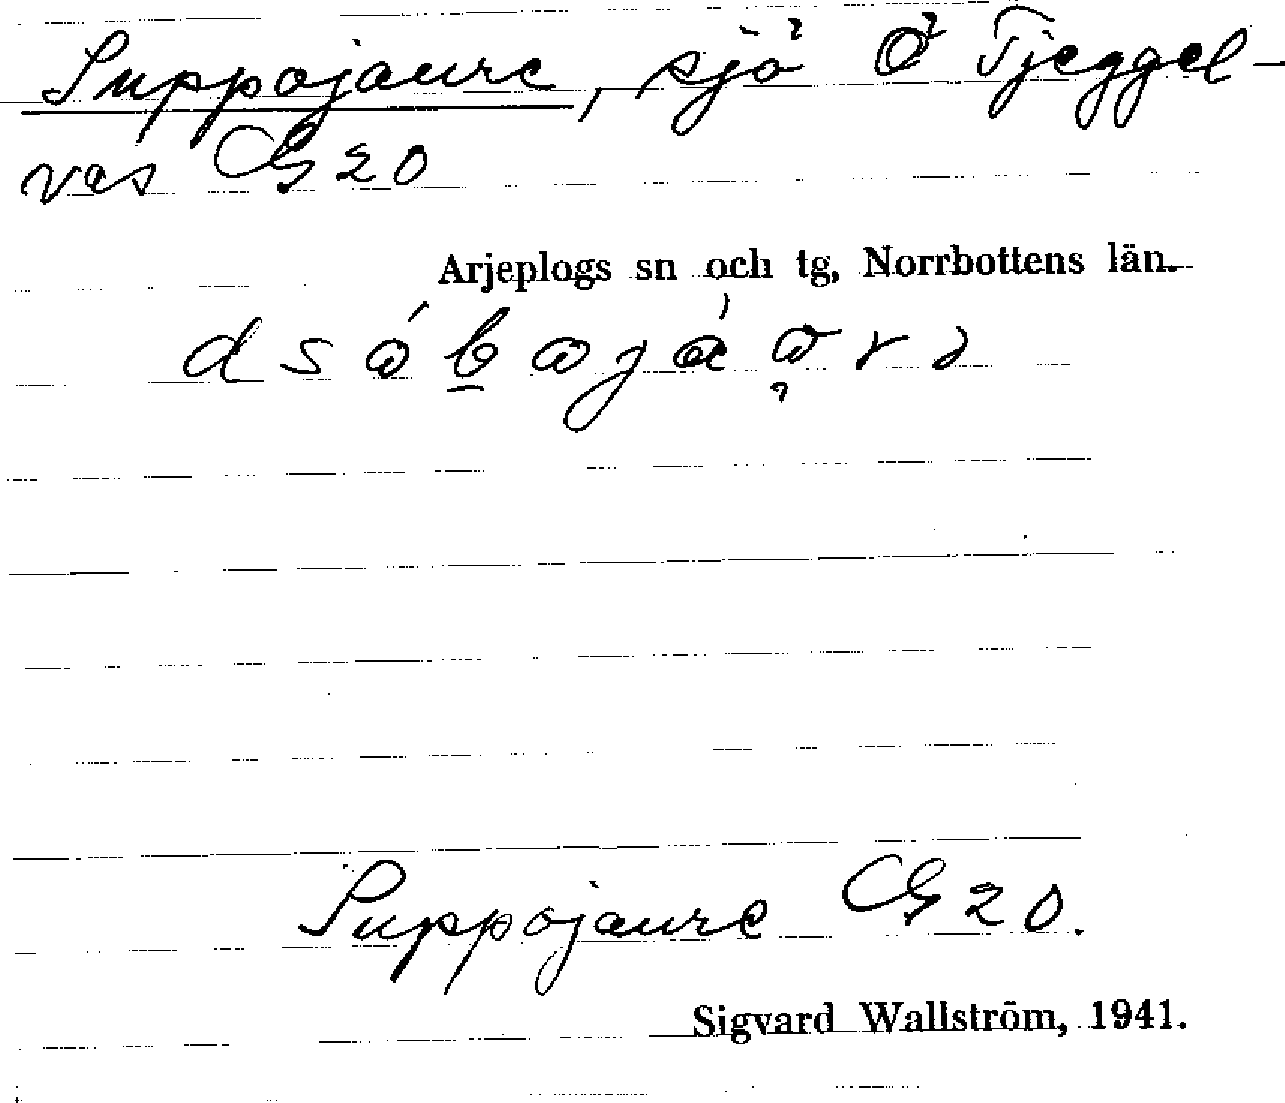 Suppojaure, sjö Ö Tjeggel-
ves G20
Arjeplogs sn och tg, Norrbottens län.
Suppojaure G20.
Sigvard Wallström, 1941.